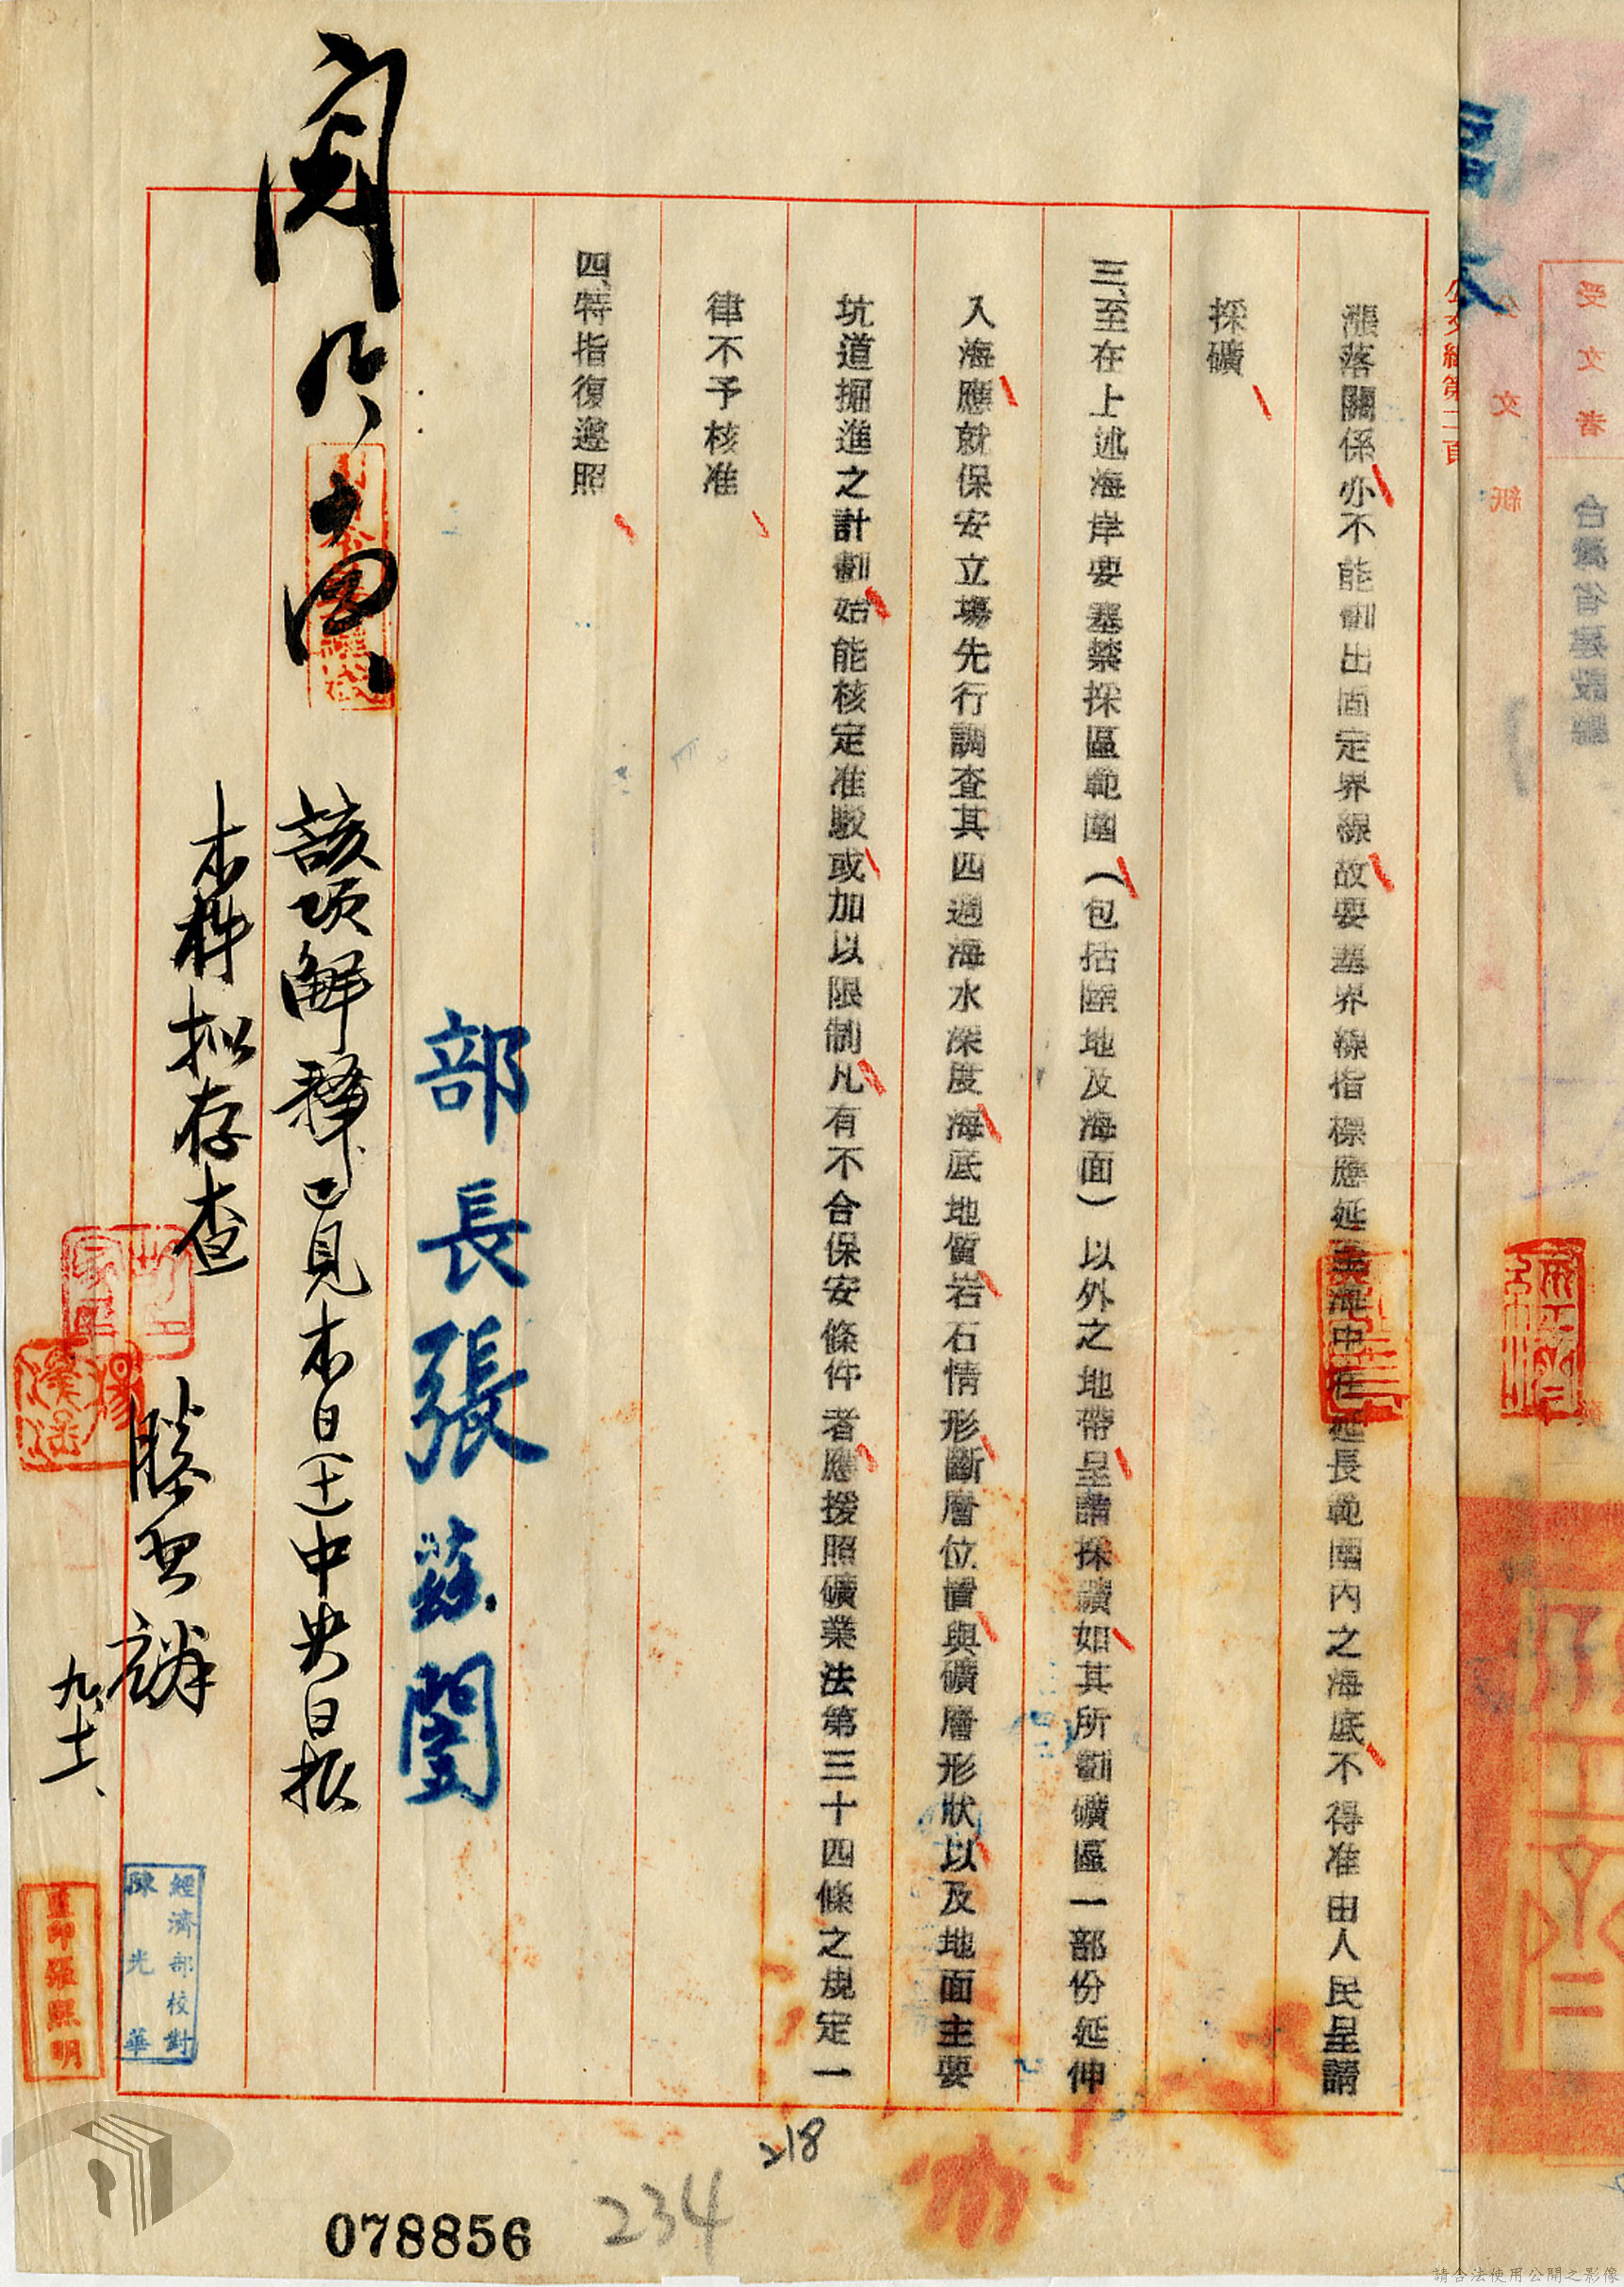 受文者
台灣省建設廳
公文紙
副本
公文紙第二頁
漲落關係亦不能劃出固定界線故要塞界線指標應延至海中在延長範圍內之海底不得准由人民呈請
採礦
三、至在上述海岸要塞禁採區範圍(包括陸地及海面)以外之地帶呈請採礦如其所劃礦區一部份延伸
入海應就保安立場先行調查其四週海水深度海底地質岩石情形斷層位置與礦層形狀以及地面主要
坑道掘進之計劃始能核定准駁或加以限制凡有不合保安條件者應援照礦業法第三十四條之規定一
律不予核准
四、特指復遵照
部長張茲闓
該項解釋已見本日(十一)中央日報
本件擬存查
九、十一、
經濟部校對
陳光華
監印張熙明
218
234
078856
請合法使用公開之影像